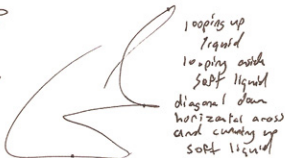 looping up
liquid
looping aside
soft liquid
diagonal down
horizontal across
and curving up
soft liquid